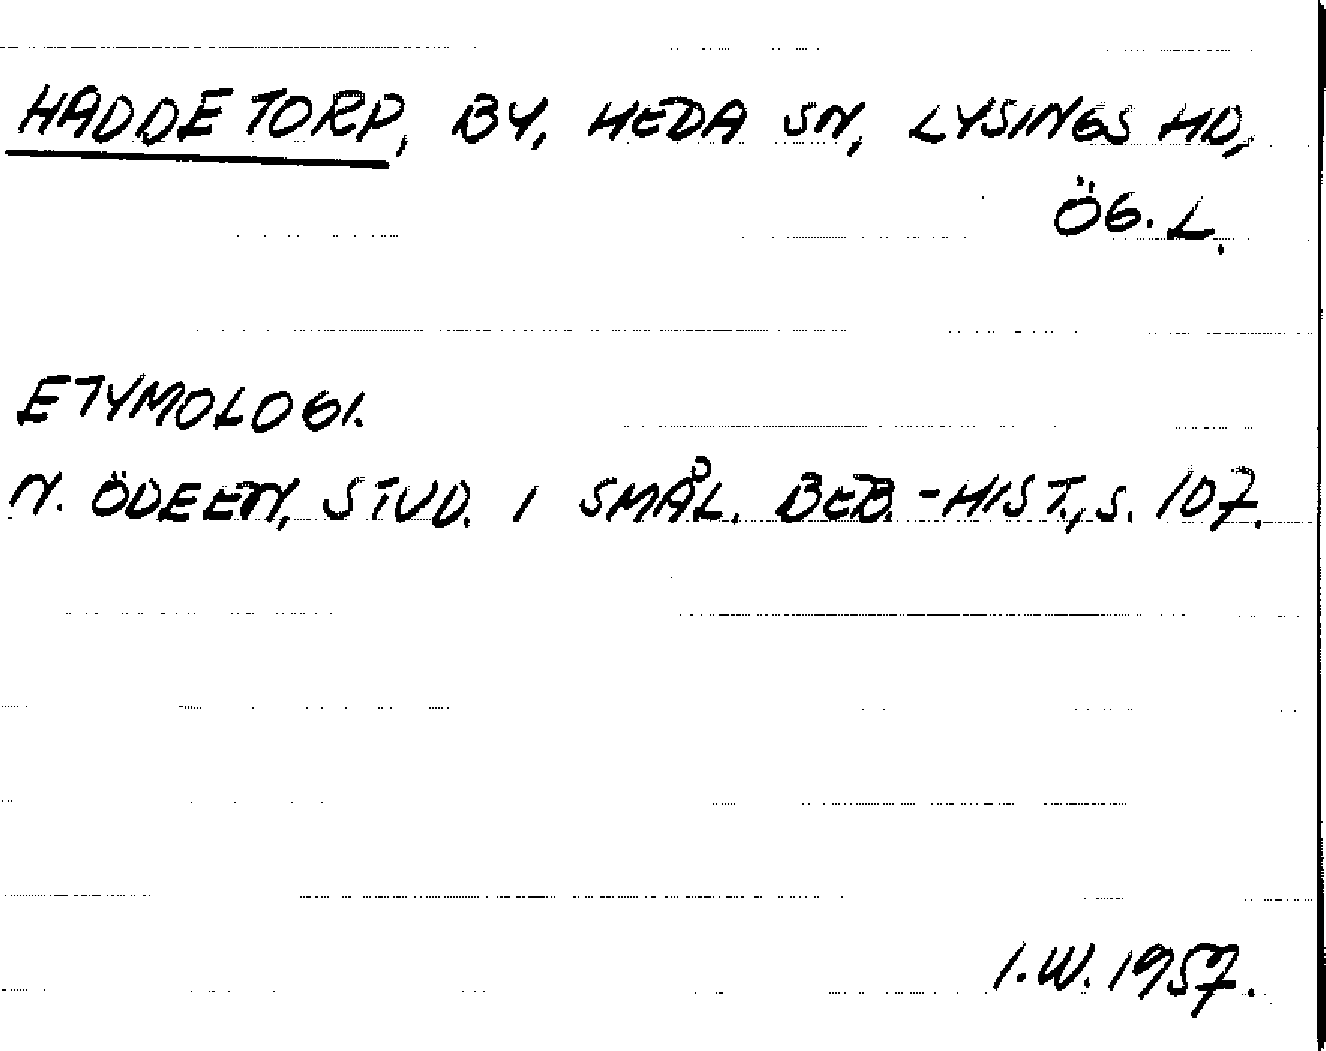 HADDETORP, BY, HEDA SN, LYSINGS HD,
ÖG.L.
ETYMOLOGI.
N. ÖDEEN, STUD. I SMÅL. BEB.-HIST., S. 107.
I.W. 1957.